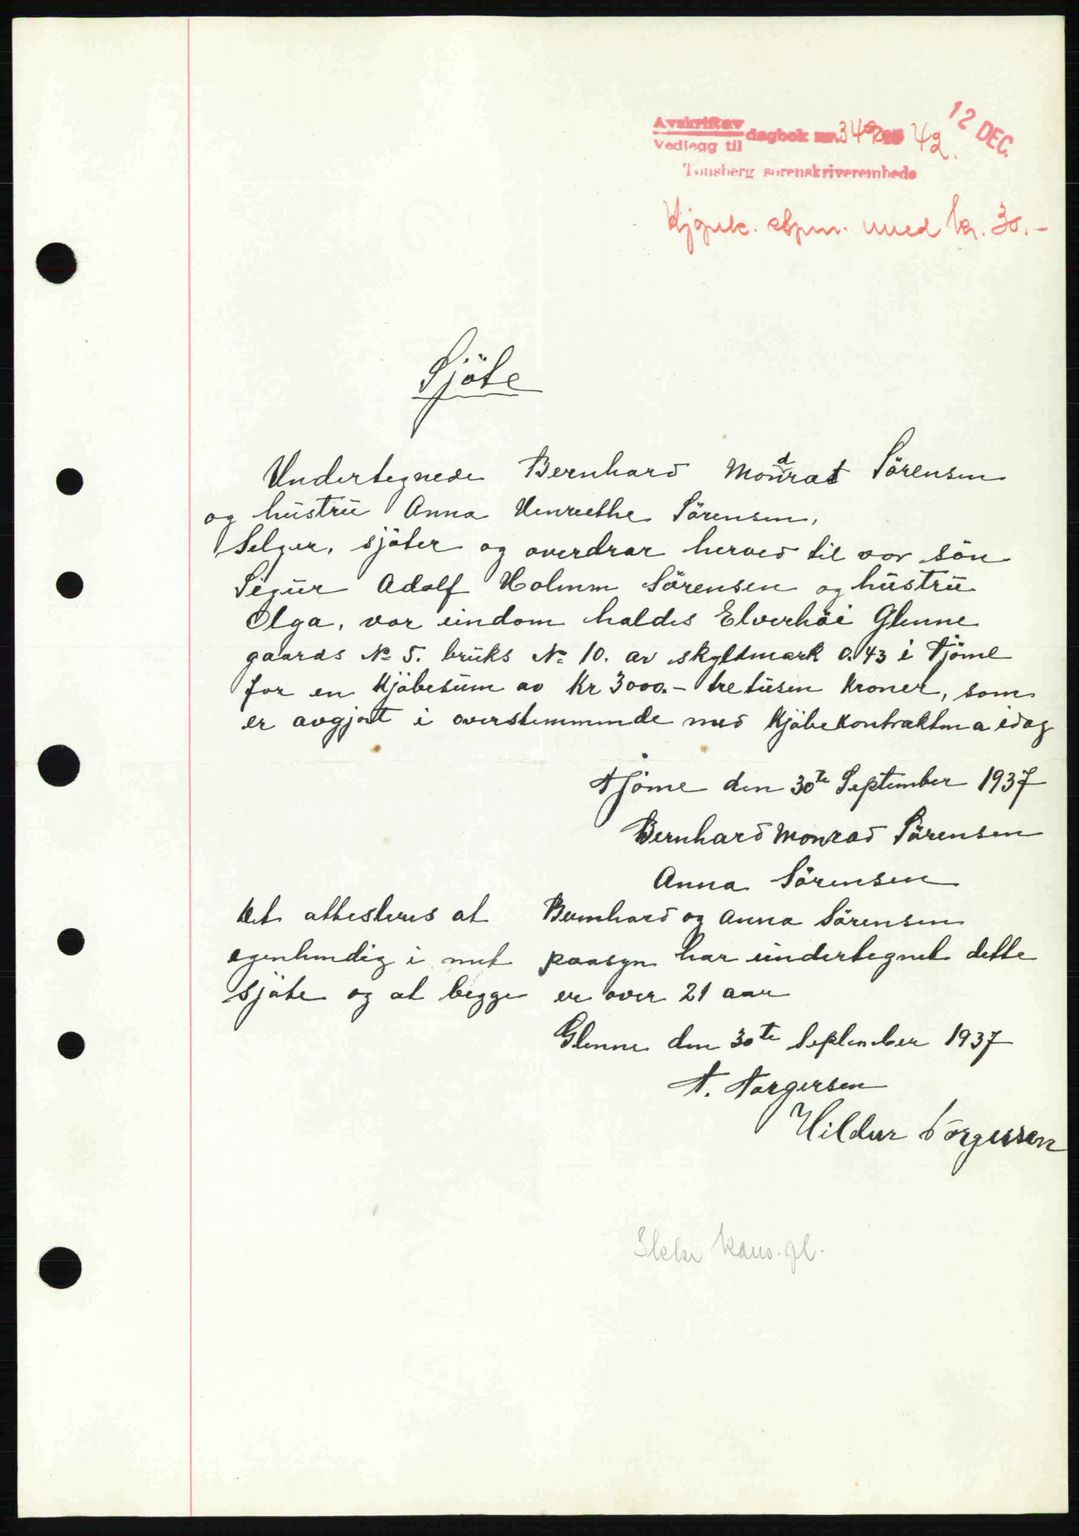 Avskrift av
Vedlegg til dagbok nr. 42.
12 DEC.
Tønsberg sorenskriverembede
med kr. 30.-
Sjöte
Undertegnede Bernhard Mondrat Sörensen
og hustru Anna Henriethe Sörensen,
Selger, sjöter og overdrar herved til vor sön
Sigur Adolf Holmm Sörensen og hustru
Olga, vor eindom haldes Elverhöi Glenne
gaards No 5. bruks No 10. av skyldmark 0.43 i Tjöme
for en Kjöbesum av Kr 3000.- tretusen Kroner, som
er avgjort i overstemmende med Kjöbekontraktm a idag
Tjöme den 30te September 1937
Bernhard Monrad Sörensen
Anna Sörensen
Det attesteres at Bernhard og Anna Sörensen
egenhendig i mit paasyn har undertegnet dette
Sjöte og at begge er over 21 aar
Glenne den 30te September 1937
T. Torgersen
Hildur Torgersen
Ikke kaus. pl.